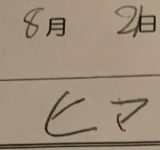 8月 21日
ヒマ